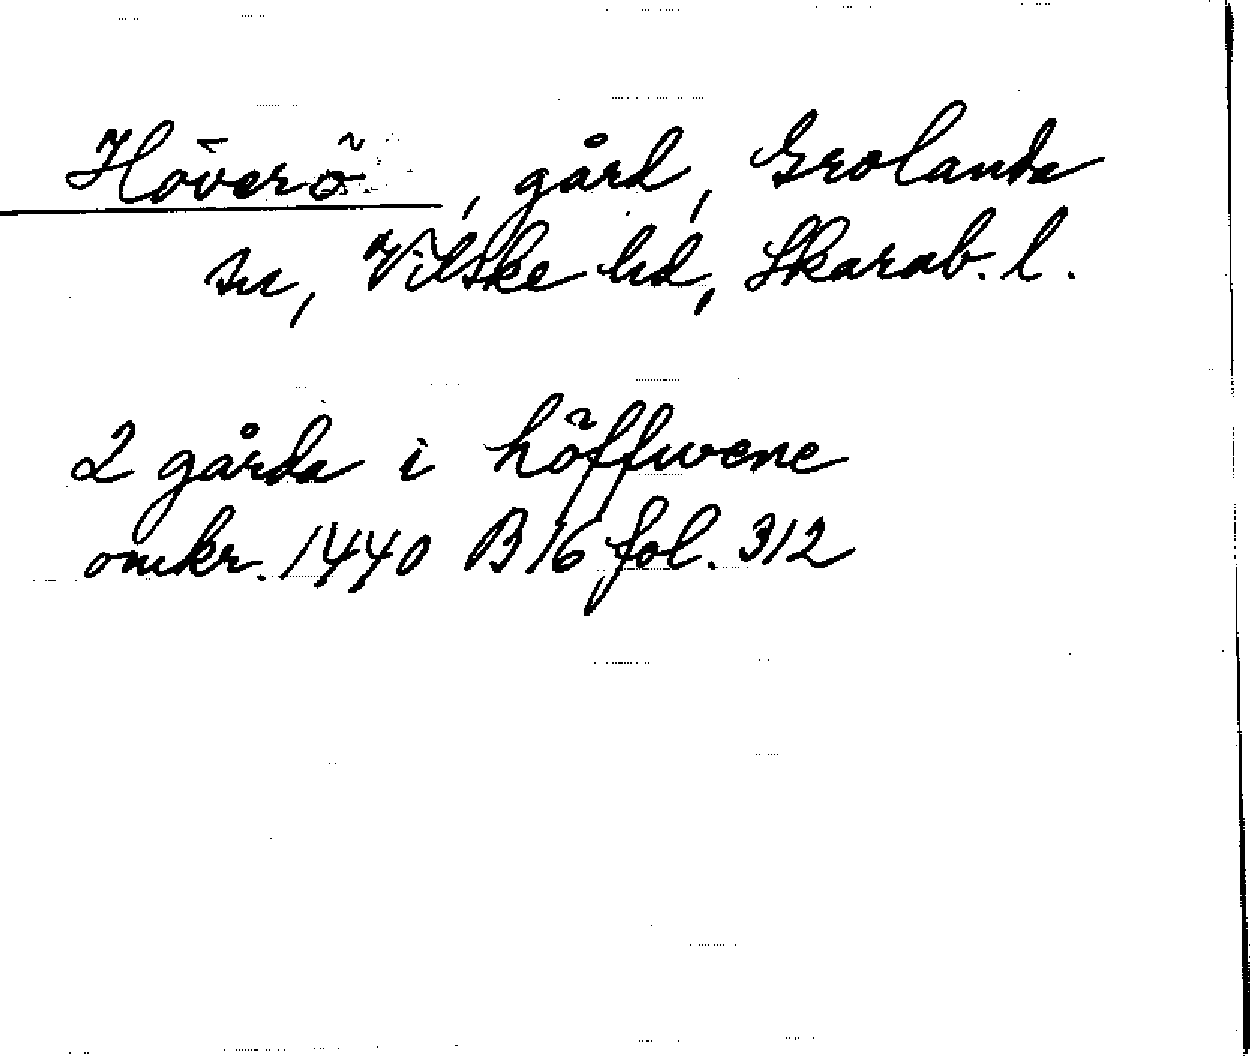 Höverö, gård, Grolanda
sn, Vilske hd, Skarab. l.
2 gårda i höffwene
omkr. 1440 B 16 fol. 312